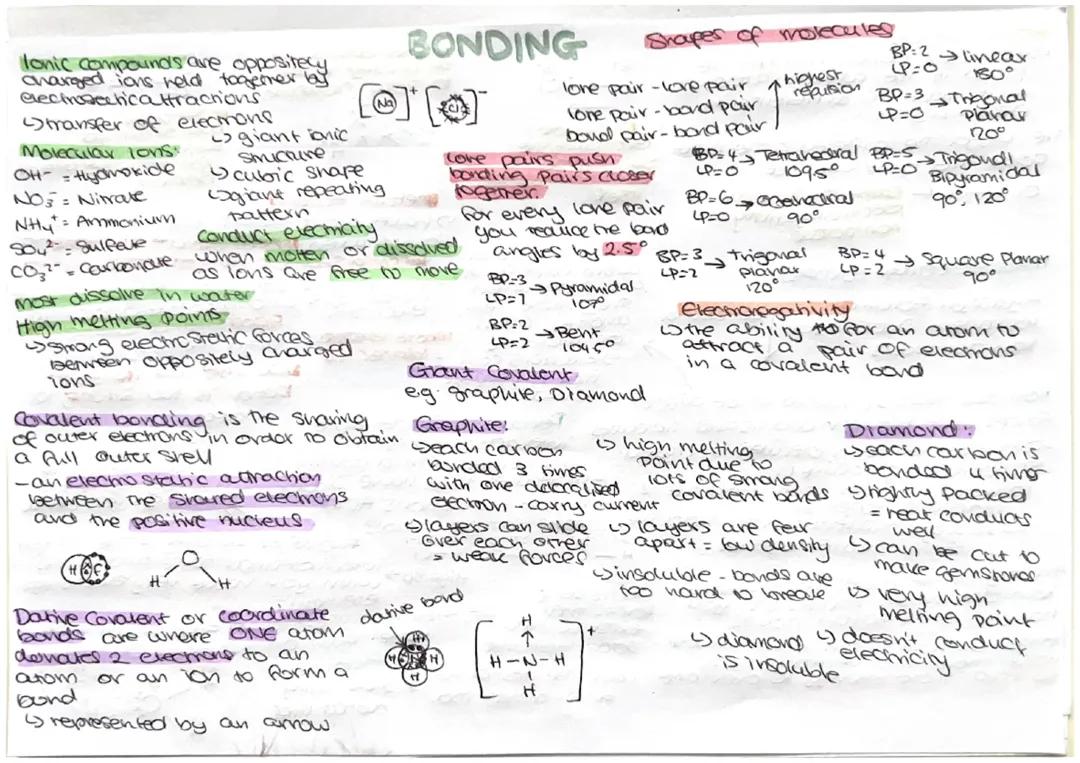 BONDING
Ionic compounds are oppositely
charged ions held together by
electrostatic attractions
↳ transfer of electrons
[Na]⁺ [Cl]⁻
↳ giant ionic
structure
↳ cubic shape
↳ giant repeating
pattern
Molecular Ions:
OH⁻ = Hydroxide
NO₃⁻ = Nitrate
NH₄⁺ = Ammonium
SO₄²⁻ = Sulfate
CO₃²⁻ = Carbonate
Conduct electricity
when molten or dissolved
as ions are free to move
most dissolve in water
High melting points
↳ strong electrostatic forces
between oppositely charged
ions
Covalent bonding is the sharing
of outer electrons in order to obtain
a full outer shell
- an electrostatic attraction
between the shared electrons
and the positive nucleus
H F
O
H H
Dative Covalent or coordinate
bonds are where ONE atom
donates 2 electrons to an
atom or an ion to form a
bond
↳ represented by an arrow
dative bond
H
H N H
H
H
↑
H-N-H
H
+
Shapes of molecules
lone pair - lone pair
lone pair - bond pair
bond pair - bond pair
↑ highest
repulsion
BP=2
LP=0
→ linear
180°
BP=3
LP=0
→ Trigonal
planar
120°
Lone pairs push
bonding pairs closer
together.
For every lone pair
you reduce the bond
angles by 2.5°
BP=4
LP=0
→ Tetrahedral
109.5°
BP=5
LP=0
→ Trigonal
Bipyramidal
90°, 120°
BP=6
LP=0
→ octahedral
90°
BP=3
LP=1
→ Pyramidal
107°
BP=2
LP=2
→ Bent
104.5°
BP=3
LP=2
→ Trigonal
planar
120°
BP=4
LP=2
→ Square Planar
90°
Electronegativity
↳ the ability for an atom to
attract a pair of electrons
in a covalent bond
Giant Covalent
e.g. graphite, Diamond
Graphite:
↳ each carbon
bonded 3 times
with one delocalised
electron - carry current
↳ layers can slide
over each other
= weak forces
↳ high melting
point due to
lots of strong
covalent bonds
↳ layers are far
apart = low density
↳ insoluble - bonds are
too hard to break
Diamond:
↳ each carbon is
bonded 4 times
↳ tightly packed
= heat conducts
well
↳ can be cut to
make gemstones
↳ very high
melting point
↳ doesn't conduct
electricity
↳ diamond
is insoluble